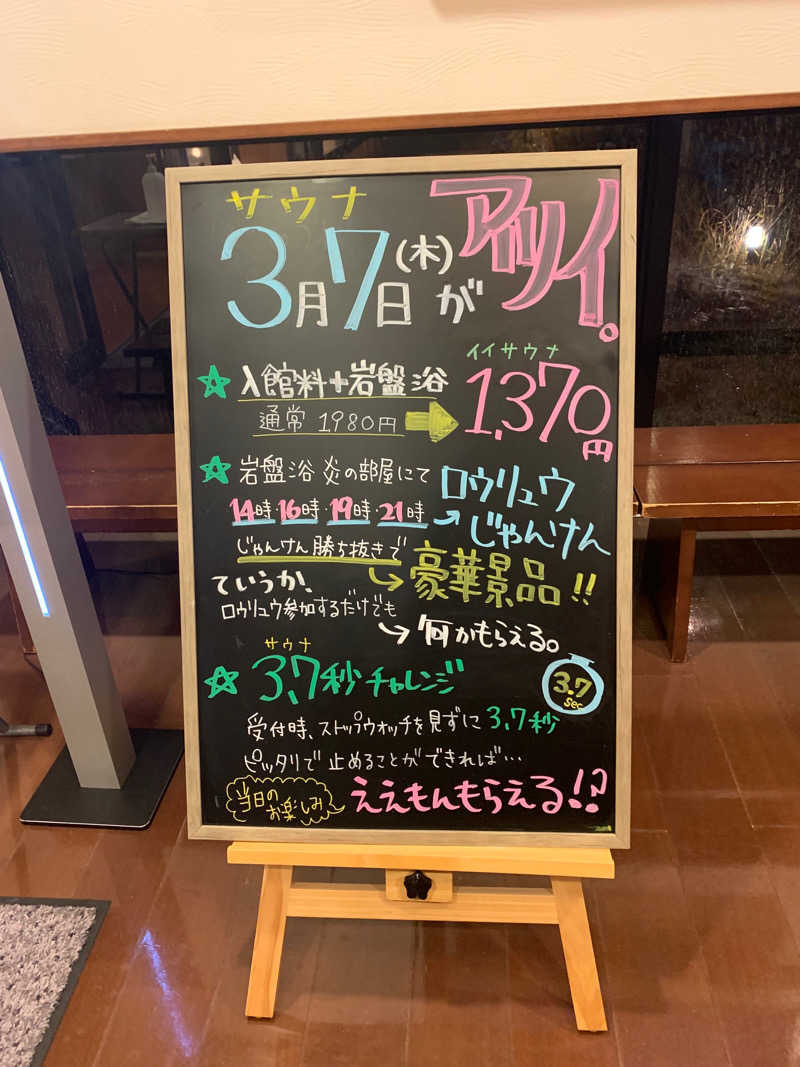 サウナ
3月7日(木)が アツイ。
イイサウナ
☆ 入館料+岩盤浴 1,370円
通常 1980円
☆ 岩盤浴 炎の部屋にて ロウリュウ
14時・16時・19時・21時 じゃんけん
じゃんけん勝ち抜きで 豪華景品!!
ていうか、
ロウリュウ参加するだけでも
何かもらえる。
サウナ
☆ 3,7秒チャレンジ
3.7
sec
受付時、ストップウォッチを見ずに 3,7秒
ピッタリで止めることができれば…
当日の
お楽しみ
ええもんもらえる!?